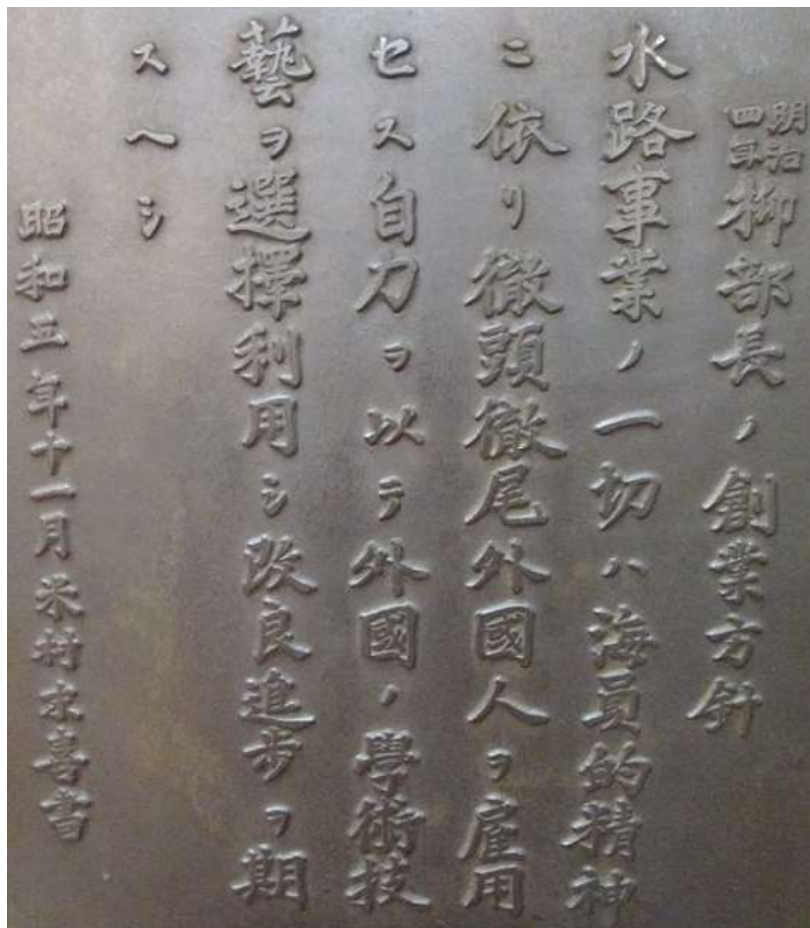 明治四年柳部長ノ創業方針
水路事業ノ一切ハ海員的精神
ニ依リ徹頭徹尾外國人ヲ雇用
セス自力ヲ以テ外國ノ學術技
藝ヲ選擇利用シ改良進歩ヲ期
スヘシ
昭和五年十一月米村末喜書